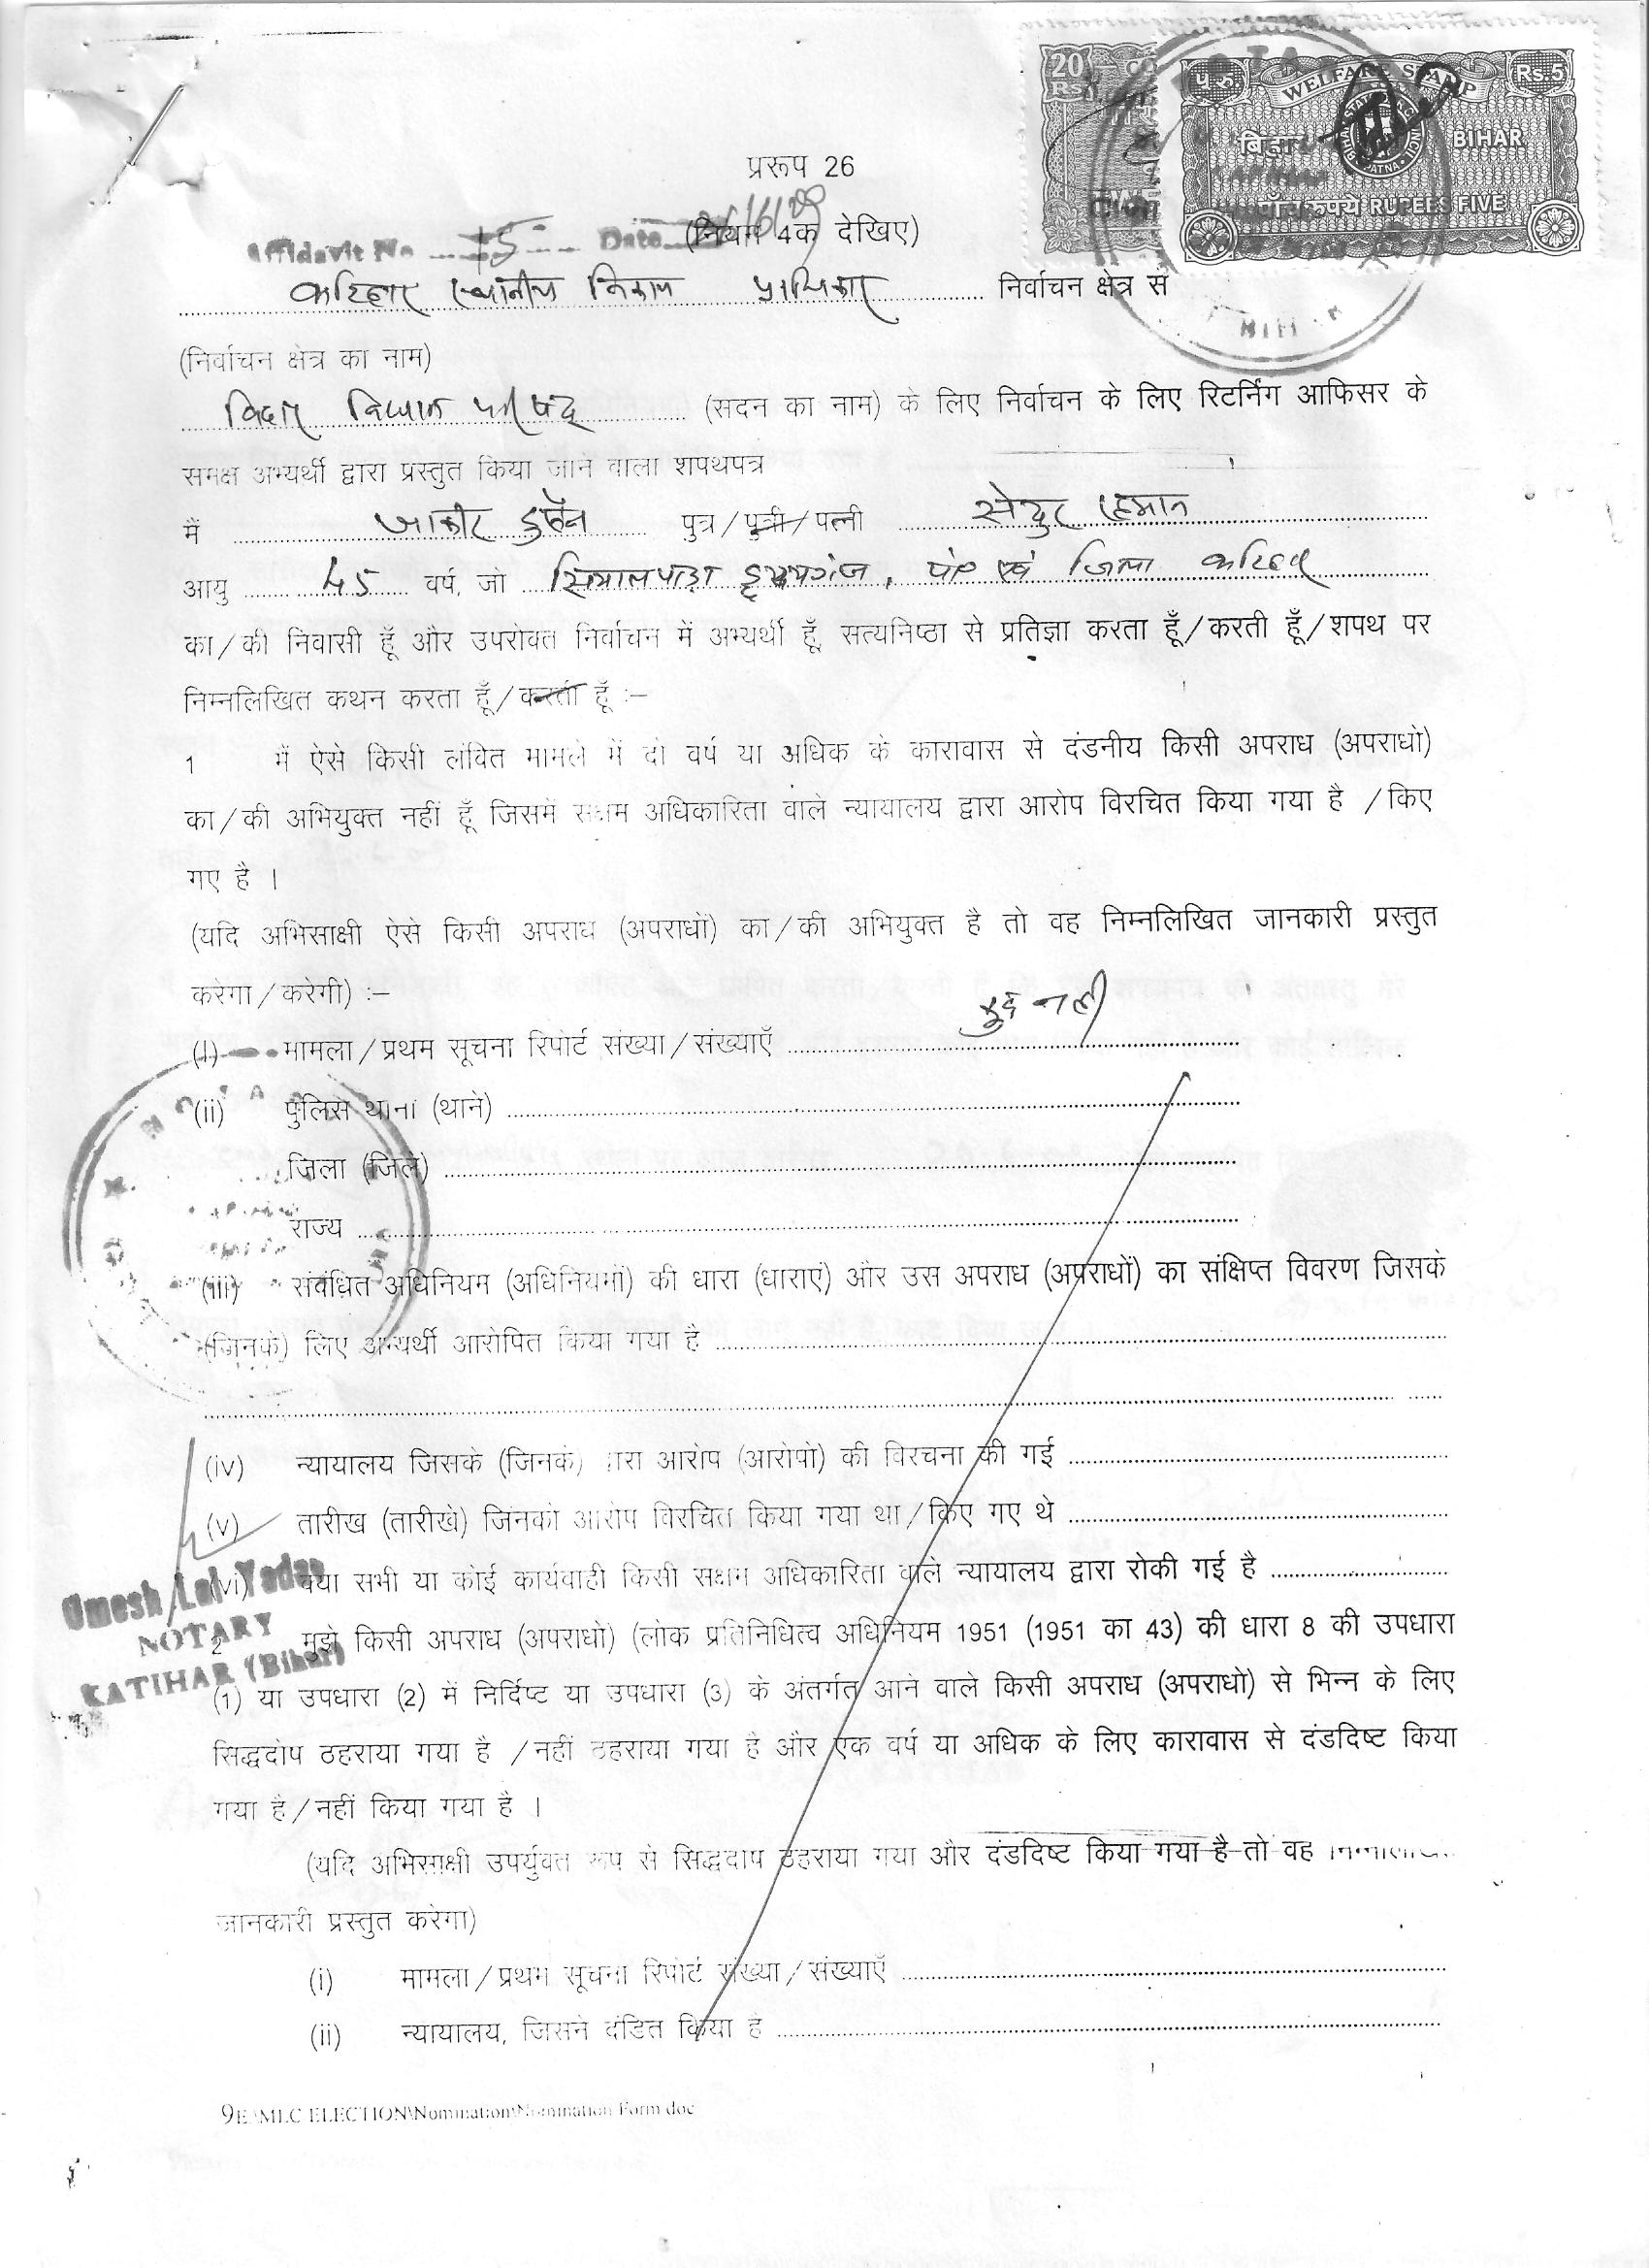 20
Rs
प. रु.
WELFARE STAMP
Rs.5
बिहार
BIHAR
पाँच रुपये RUPEES FIVE
प्ररूप 26
Affidavit No 15 Date
(नियम 4क देखिए)
कटिहार स्थानीय निकाय प्राधिकार निर्वाचन क्षेत्र से
(निर्वाचन क्षेत्र का नाम)
बिहार विधान परिषद् (सदन का नाम) के लिए निर्वाचन के लिए रिटर्निंग आफिसर के
समक्ष अभ्यर्थी द्वारा प्रस्तुत किया जाने वाला शपथपत्र
मैं जाकीर हुसैन पुत्र/पुत्री/पत्नी रहमान
आयु 45 वर्ष, जो एवं जिला कटिहार
का/की निवासी हूँ और उपरोक्त निर्वाचन में अभ्यर्थी हूँ, सत्यनिष्ठा से प्रतिज्ञा करता हूँ/करती हूँ/शपथ पर
निम्नलिखित कथन करता हूँ/करती हूँ :–
1 मैं ऐसे किसी लंवित मामले में दो वर्ष या अधिक के कारावास से दंडनीय किसी अपराध (अपराधो)
का/की अभियुक्त नहीं हूँ जिसमें सक्षम अधिकारिता वाले न्यायालय द्वारा आरोप विरचित किया गया है /किए
गए है ।
(यदि अभिसाक्षी ऐसे किसी अपराध (अपराधों) का/की अभियुक्त है तो वह निम्नलिखित जानकारी प्रस्तुत
करेगा/करेगी) :–
कुछ नही
(i) मामला/प्रथम सूचना रिपोर्ट संख्या/संख्याएँ
(ii) पुलिस थाना (थाने)
जिला (जिले)
राज्य
(iii) संबंधित अधिनियम (अधिनियमों) की धारा (धाराएं) और उस अपराध (अपराधों) का संक्षिप्त विवरण जिसके
(जिनके) लिए अभ्यर्थी आरोपित किया गया है
(iv) न्यायालय जिसके (जिनके) द्वारा आरोप (आरोपो) की विरचना की गई
(v) तारीख (तारीखे) जिनको आरोप विरचित किया गया था/किए गए थे
(vi) क्या सभी या कोई कार्यवाही किसी सक्षम अधिकारिता वाले न्यायालय द्वारा रोकी गई है
Umesh Lal Yadav
NOTARY
KATIHAR (Bihar)
2 मुझे किसी अपराध (अपराधो) (लोक प्रतिनिधित्व अधिनियम 1951 (1951 का 43) की धारा 8 की उपधारा
(1) या उपधारा (2) में निर्दिष्ट या उपधारा (3) के अंतर्गत आने वाले किसी अपराध (अपराधो) से भिन्न के लिए
सिद्धदोष ठहराया गया है /नहीं ठहराया गया है और एक वर्ष या अधिक के लिए कारावास से दंडदिष्ट किया
गया है/नहीं किया गया है ।
(यदि अभिसाक्षी उपर्युक्त रूप से सिद्धदोष ठहराया गया और दंडदिष्ट किया गया है तो वह
जानकारी प्रस्तुत करेगा)
(i) मामला/प्रथम सूचना रिपोर्ट संख्या/संख्याएँ
(ii) न्यायालय, जिसने दंडित किया है
9E:\MLC ELECTION\Nomination\Nomination Form.doc